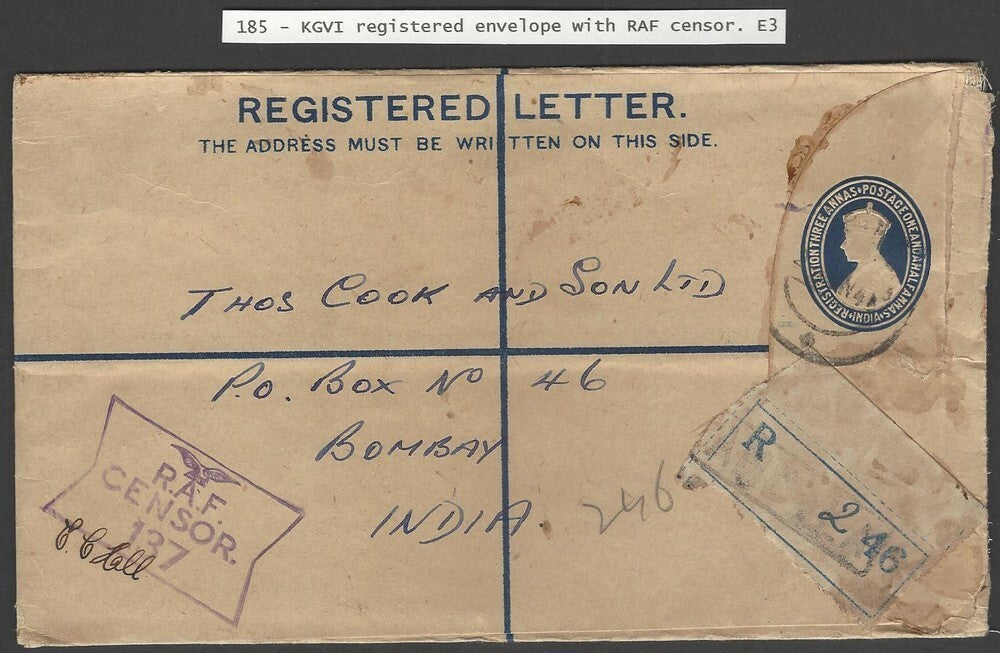 185 - KGVI registered envelope with RAF censor. E3
REGISTERED LETTER.
THE ADDRESS MUST BE WRITTEN ON THIS SIDE.
REGISTRATION THREE ANNAS • POSTAGE ONE AND A HALF ANNAS • INDIA •
THOS COOK AND SON LTD
P.O. BOX No 46
BOMBAY
INDIA
246
R
2 46
R.A.F.
CENSOR.
137
C. C Hall